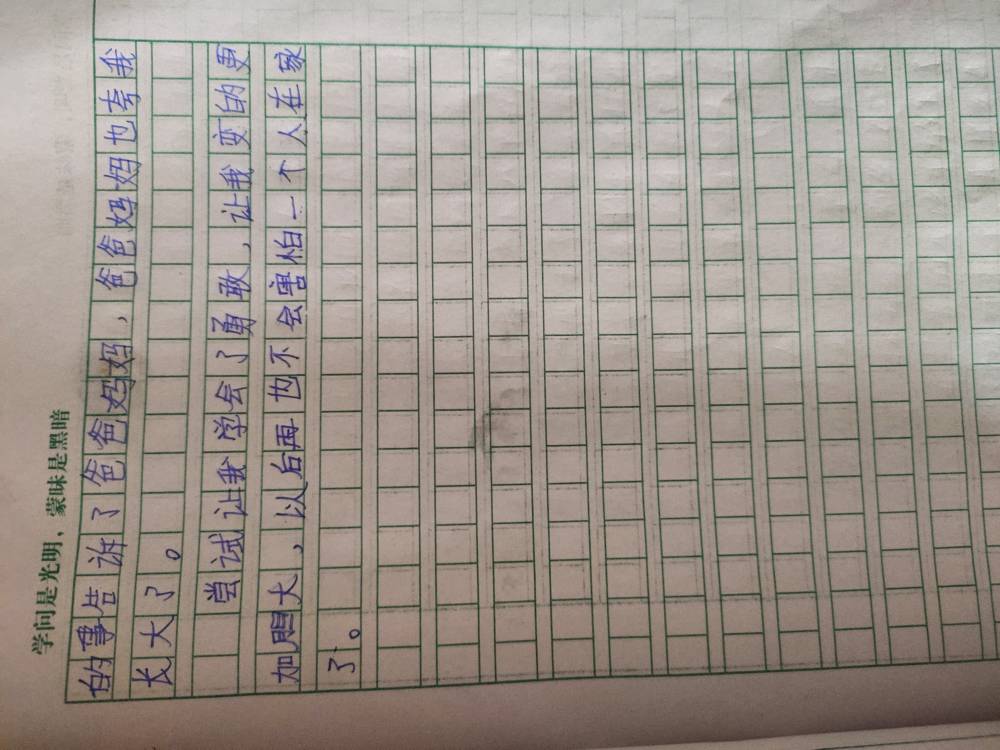 学问是光明，蒙昧是黑暗
的事告诉了爸爸妈妈，爸爸妈妈也夸我
长大了。
尝试让我学会了勇敢，让我变的更
加胆大，以后再也不会害怕一个人在家
了。